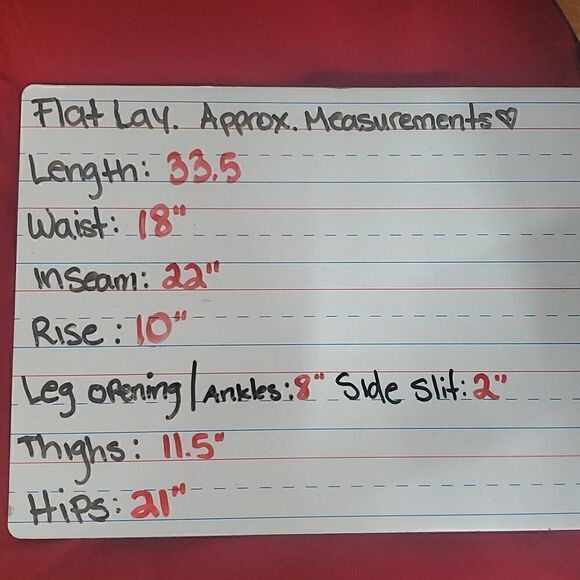 Flat Lay. Approx. Measurements♡
Length: 33.5
Waist: 18"
Inseam: 22"
Rise: 10"
Leg opening/Ankles:8" Side Slit: 2"
Thighs: 11.5"
Hips: 21"